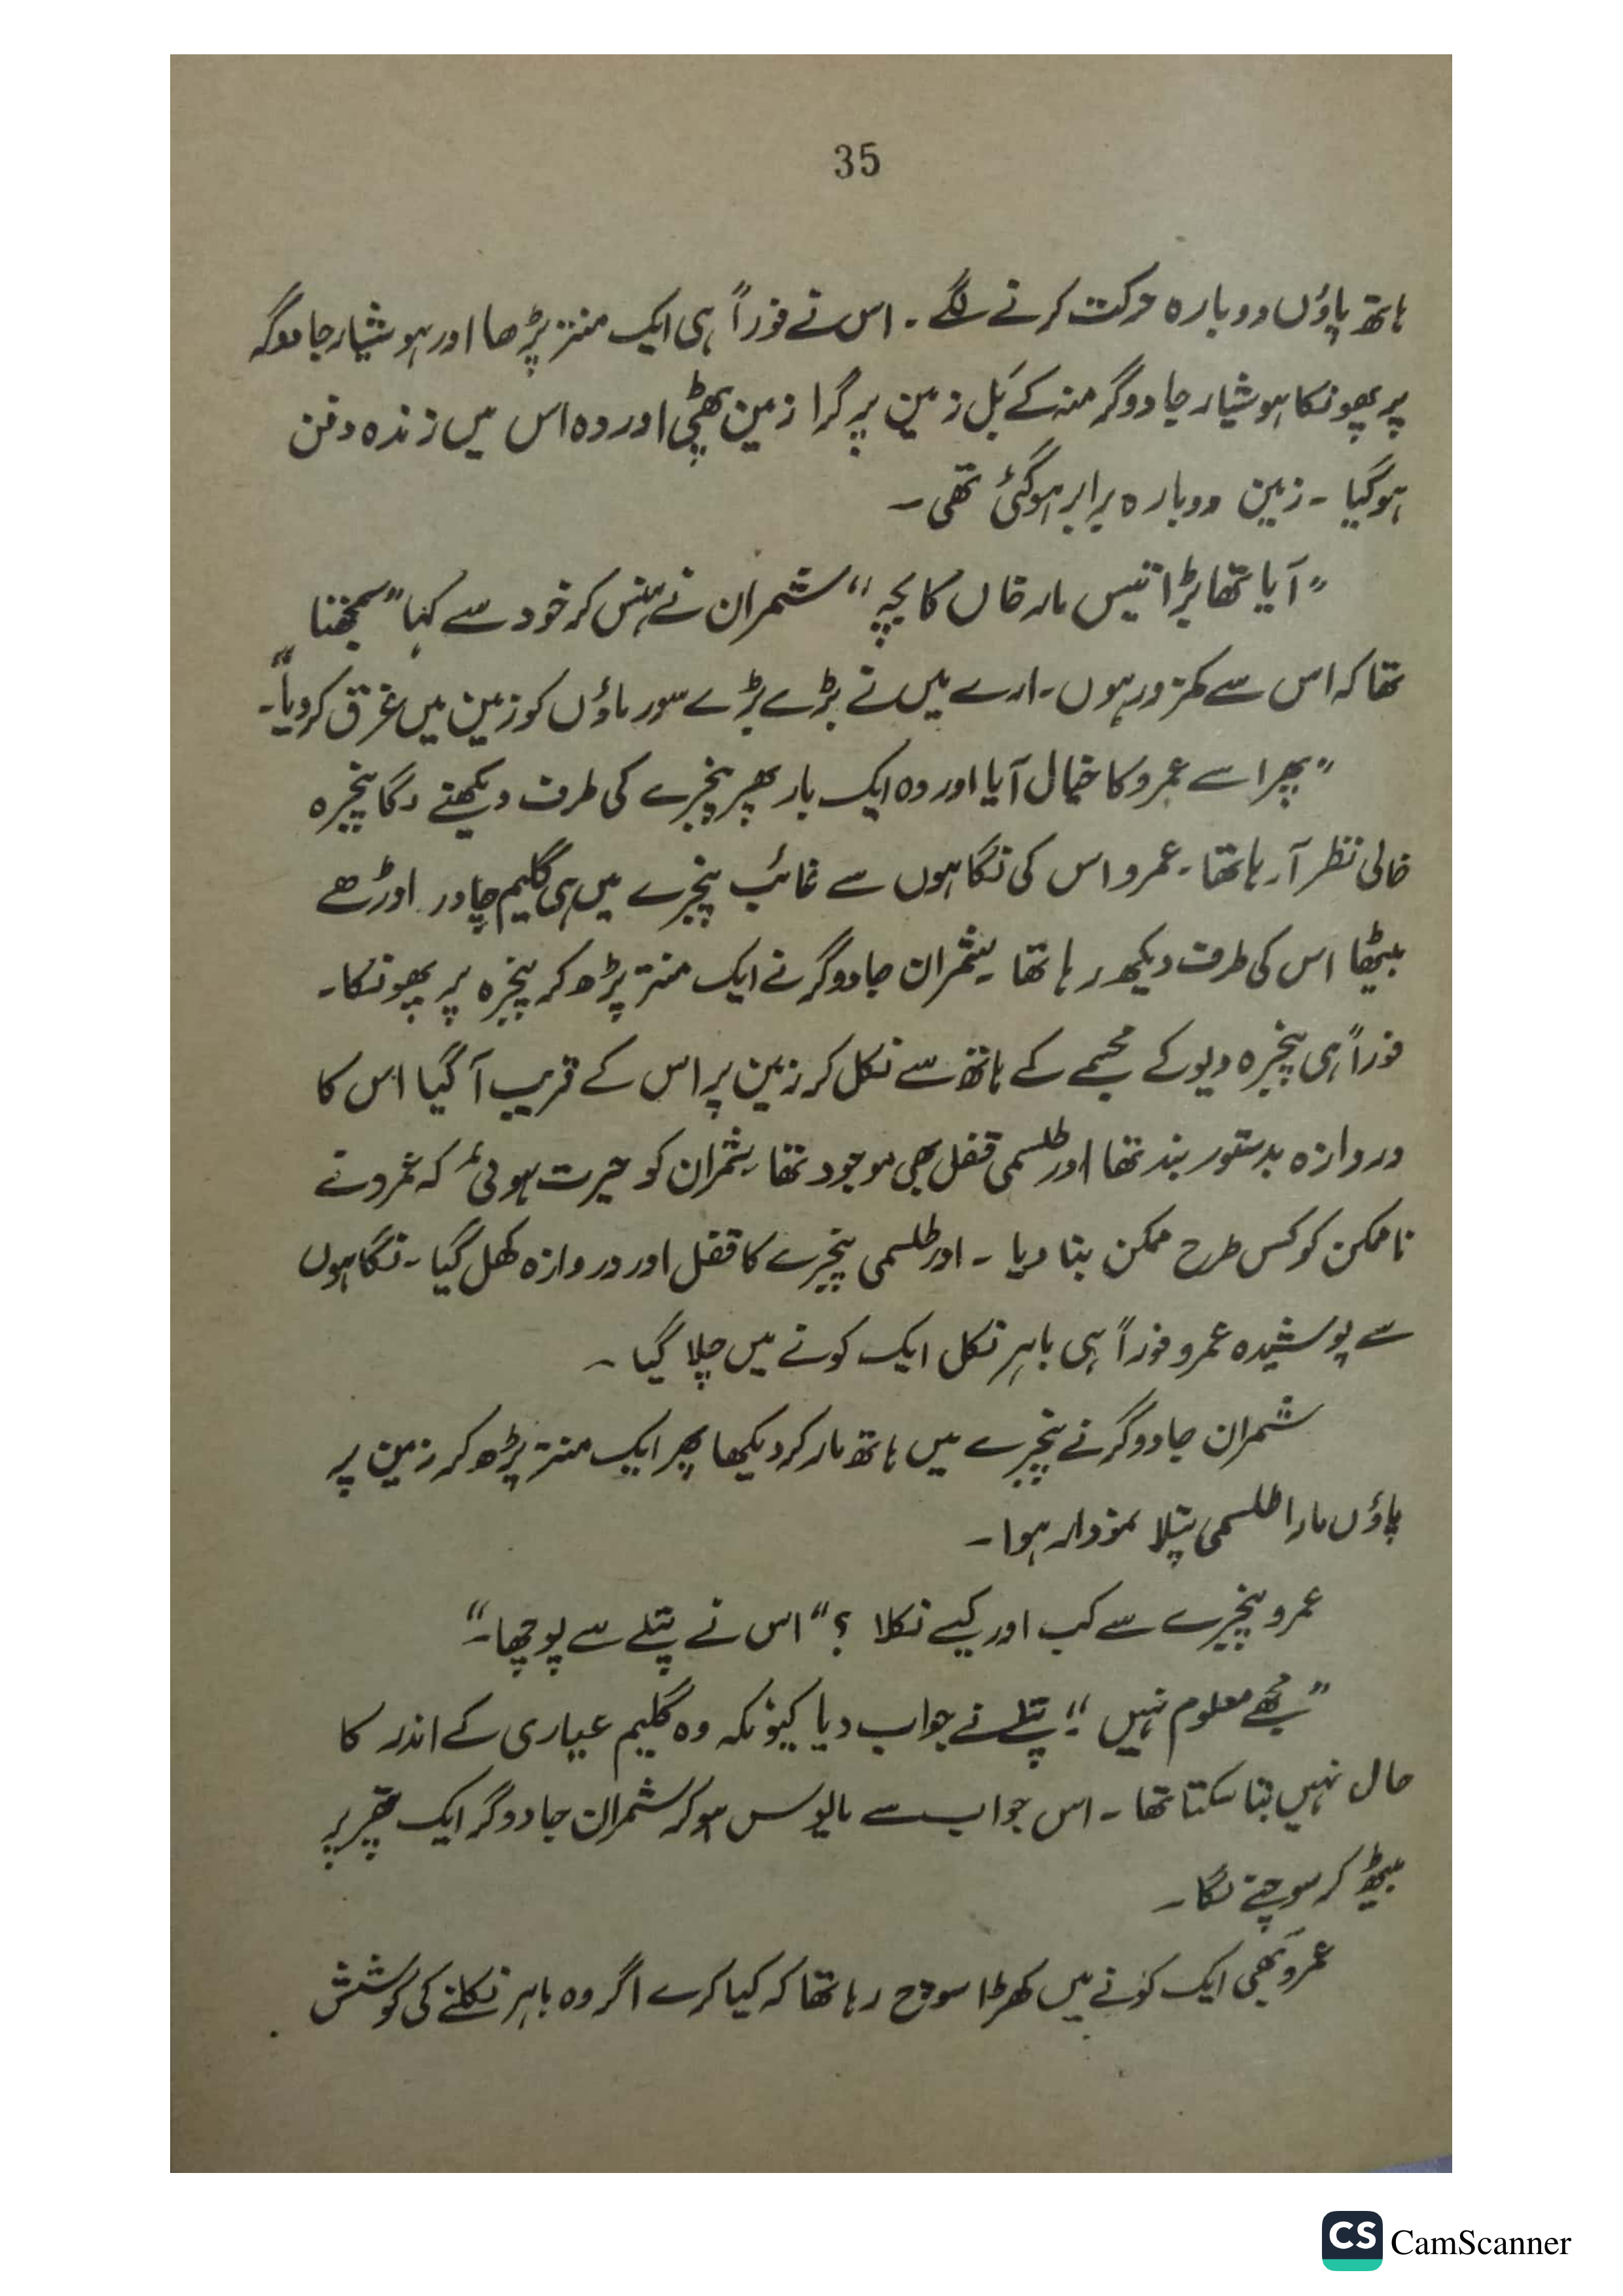 35
ہاتھ پاؤں دوبارہ حرکت کرنے لگے ۔ اس نے فوراً ہی ایک منتر پڑھا اور ہوشیار جادوگر
پر پھونکا ہوشیار جادوگر منہ کے بَل زمین پر گرا زمین پھٹی اور وہ اس میں زندہ دفن
ہوگیا ۔ زمین دوبارہ برابر ہوگئی تھی ۔
”آیا تھا بڑا تیس مار خاں کا بچہ“ شمران نے ہنس کر خود سے کہا ”سمجھتا
تھا کہ اس سے کمزور ہوں ۔ ارے میں نے بڑے بڑے سور ماؤں کو زمین میں غرق کر دیا“۔
”پھر اسے عمرو کا خیال آیا اور وہ ایک بار پھر پنجرے کی طرف دیکھنے لگا پنجرہ
خالی نظر آ رہا تھا ۔ عمرو اس کی نگاہوں سے غائب پنجرے میں ہی گلیم چادر اوڑھے
بیٹھا اس کی طرف دیکھ رہا تھا ۔ شمران جادوگر نے ایک منتر پڑھ کر پنجرہ پر پھونکا ۔
فوراً ہی پنجرہ دیو کے مجسمے کے ہاتھ سے نکل کر زمین پر اس کے قریب آ گیا اس کا
دروازہ بدستور بند تھا اور طلسمی قفل بھی موجود تھا ۔ شمران کو حیرت ہوئی کہ عمرو نے
ناممکن کو کس طرح ممکن بنا دیا ۔ اور طلسمی پنجرے کا قفل اور دروازہ کھل گیا ۔ نگاہوں
سے پوشیدہ عمرو فوراً ہی باہر نکل ایک کونے میں چلا گیا ۔
شمران جادوگر نے پنجرے میں ہاتھ مار کر دیکھا پھر ایک منتر پڑھ کر زمین پر
پاؤں مارا طلسمی پتلا نمودار ہوا ۔
عمرو پنجرے سے کب اور کیسے نکلا ؟“ اس نے پتلے سے پوچھا ۔“
”مجھے معلوم نہیں“۔ پتلے نے جواب دیا کیونکہ وہ گلیم عیاری کے اندر کا
حال نہیں بتا سکتا تھا ۔ اس جواب سے مایوس ہو کر شمران جادوگر ایک پتھر پر
بیٹھ کر سوچنے لگا ۔
عمرو بھی ایک کونے میں کھڑا سوچ رہا تھا کہ کیا کرے اگر وہ باہر نکلنے کی کوشش
CS CamScanner